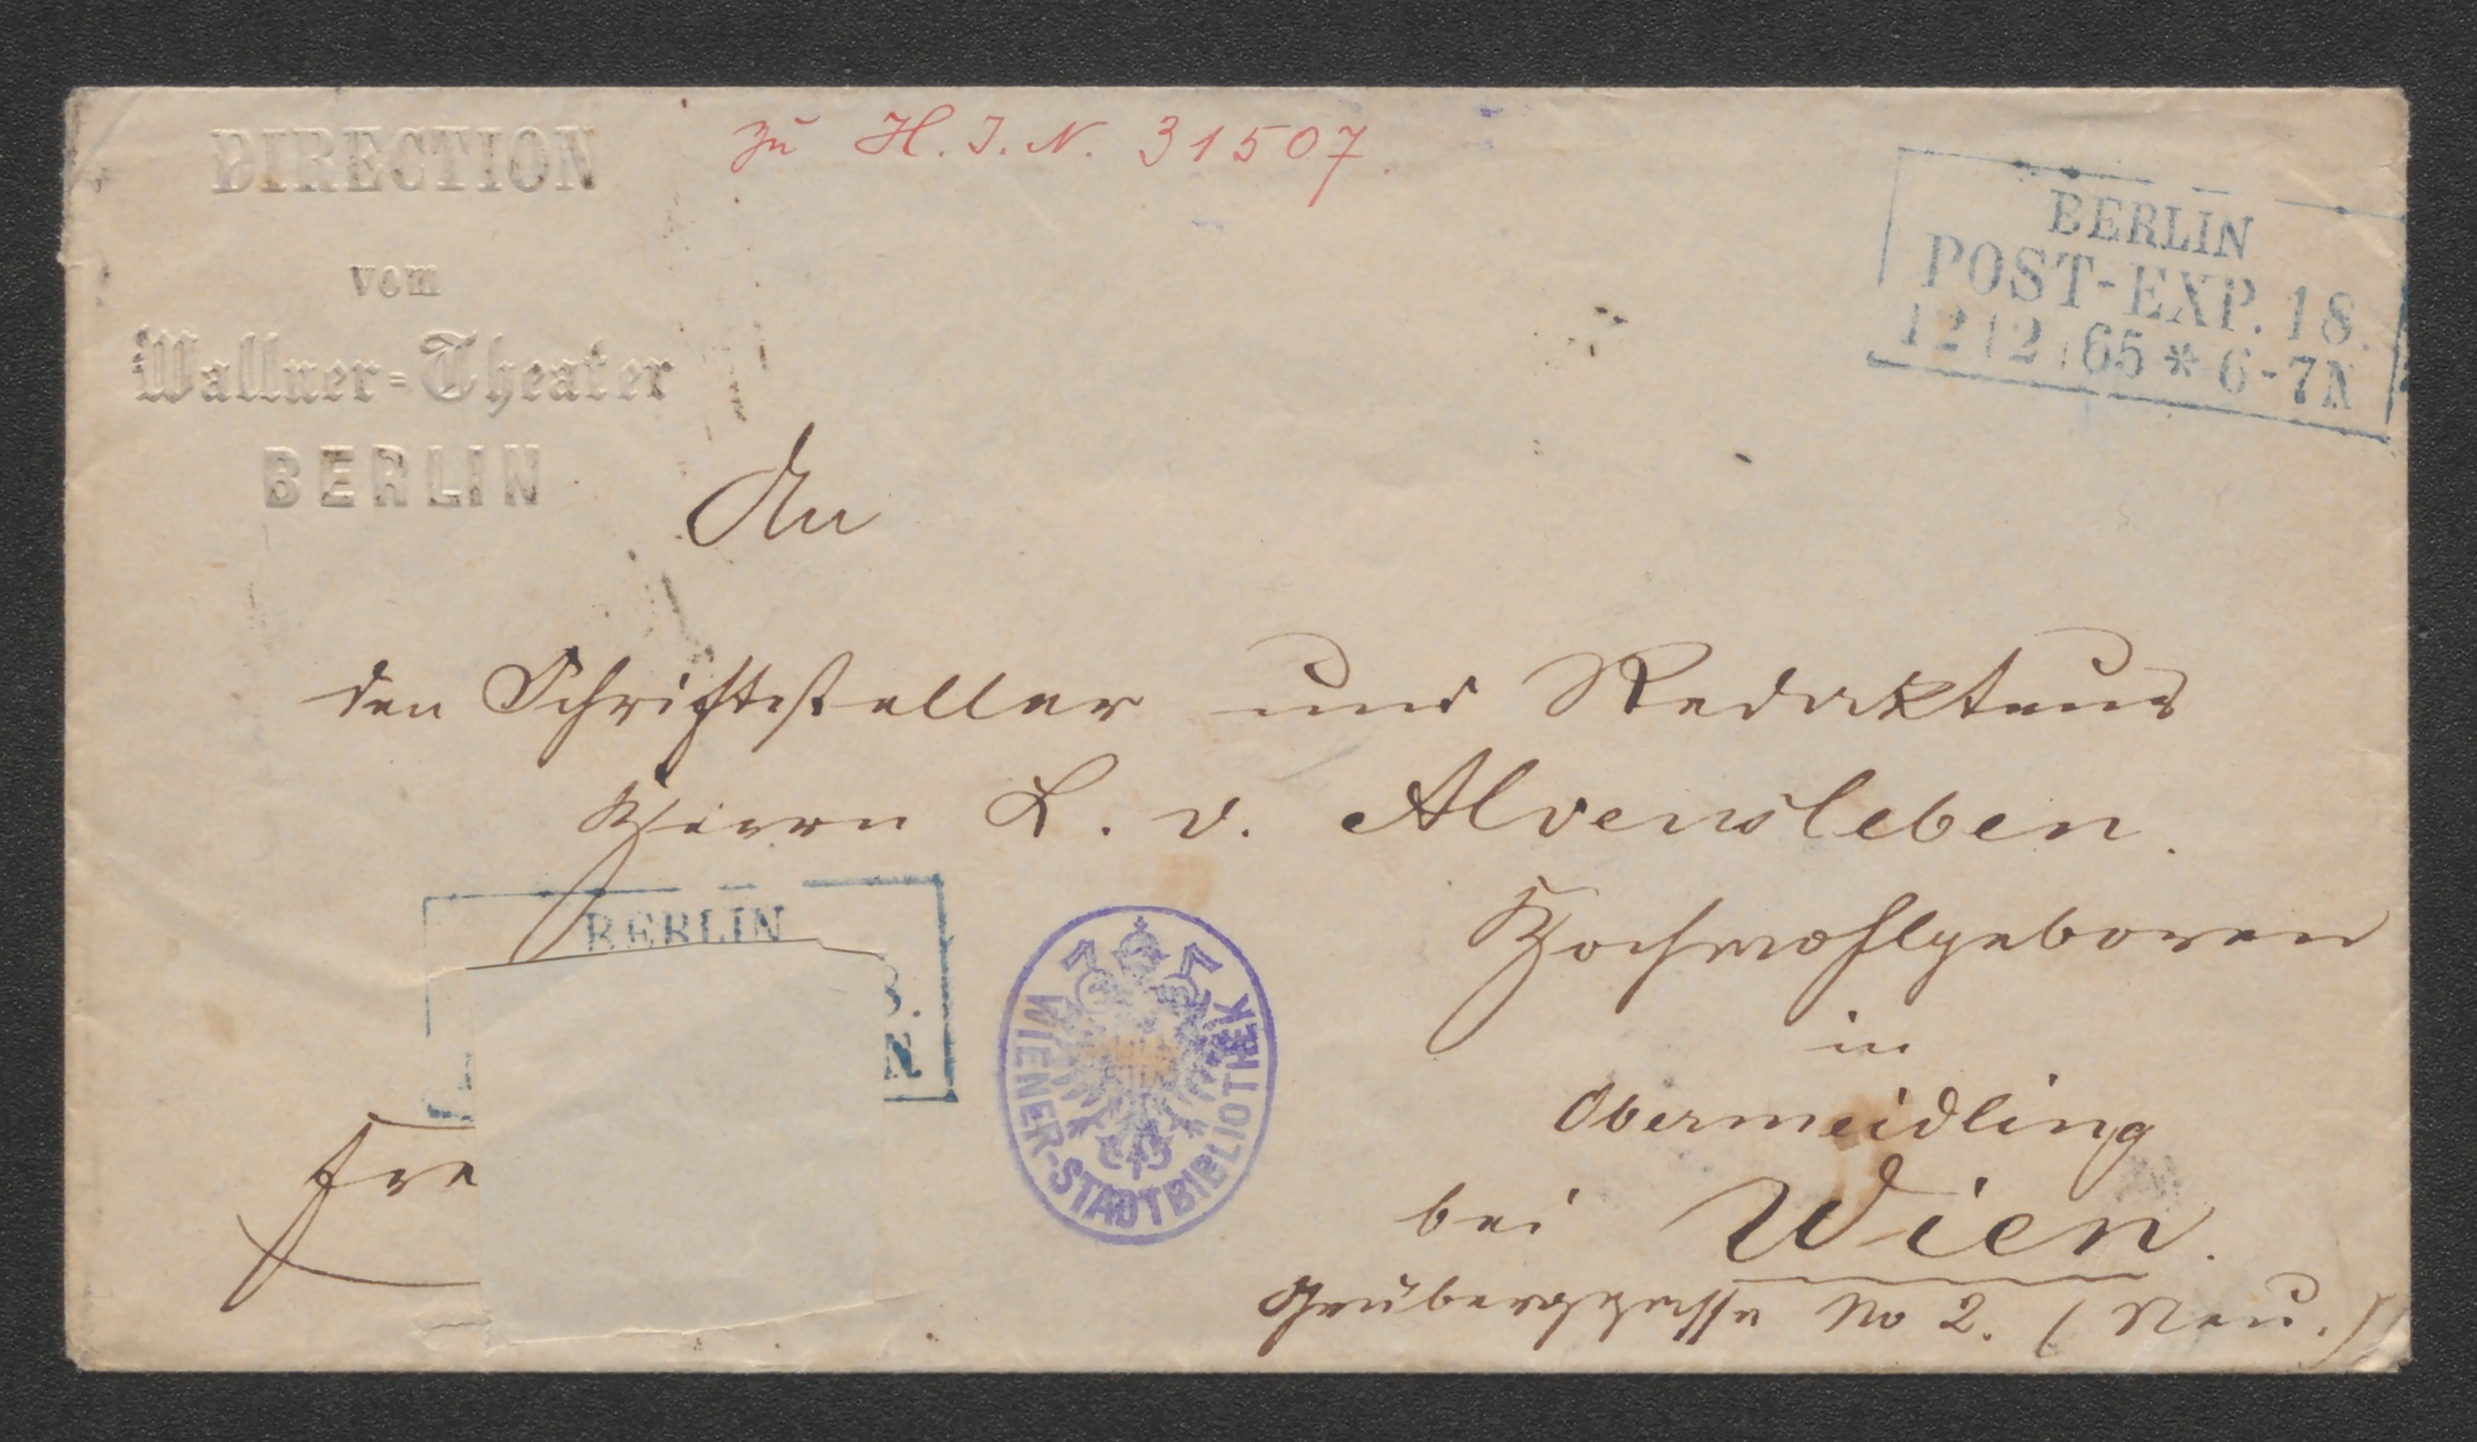 DIRECTION
vom
Wallner-Theater
BERLIN
zu H. I. N. 31507.
BERLIN
POST-EXP. 18.
12 2 65 * 6-7N
An
den Schriftsteller und Redakteur
Herrn L. v. Alvensleben.
Hochwohlgeboren
in
Obermeidling
bei Wien.
No 2. (Neu.)
BERLIN
8.
N
WIENER-STADTBIBLIOTHEK